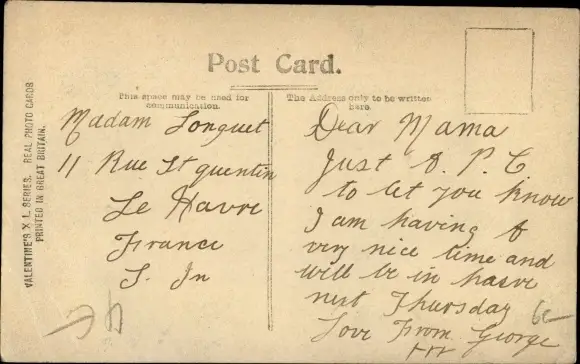 Post Card.
This space may be used for
communication.
The Address only to be written
here.
VALENTINE'S X L SERIES. REAL PHOTO CARDS
PRINTED IN GREAT BRITAIN.
Madam Longuet
11 Rue St quentin
Le Havre
France
S. In
Dear Mama
Just A. P. C
to let you know
I am having A
very nice time and
will be in havre
next Thursday
Love From George